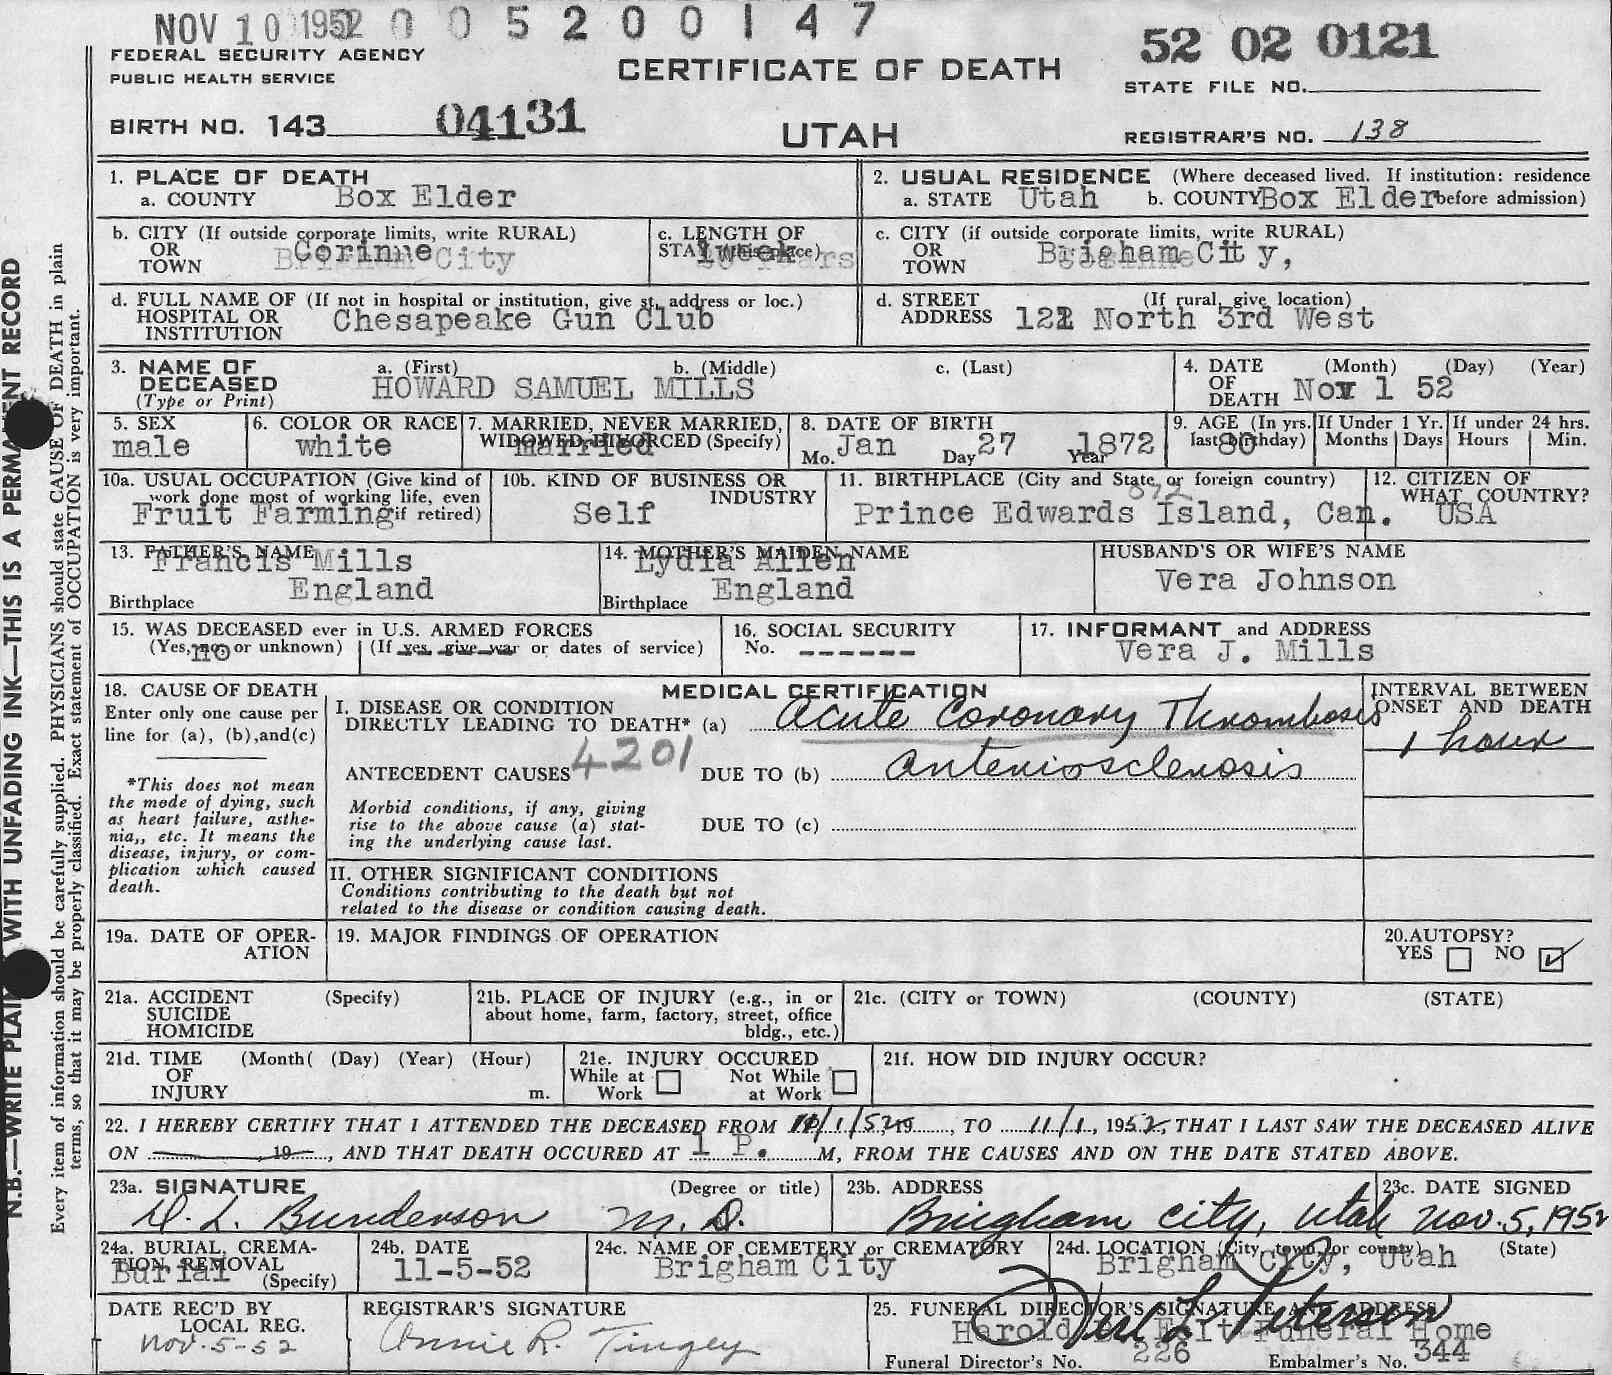 NOV 10 1952 0 0 5 2 0 0 1 4 7
52 02 0121
FEDERAL SECURITY AGENCY
PUBLIC HEALTH SERVICE
CERTIFICATE OF DEATH
STATE FILE NO.
BIRTH NO. 143 04131
UTAH
REGISTRAR'S NO. 138
1. PLACE OF DEATH
a. COUNTY Box Elder
2. USUAL RESIDENCE (Where deceased lived. If institution: residence
a. STATE Utah b. COUNTY Box Elder before admission)
b. CITY (If outside corporate limits, write RURAL)
OR
TOWN
Corinne
Brigham City
c. LENGTH OF
STAY (in this place)
1 week
c. CITY (if outside corporate limits, write RURAL)
OR
TOWN
Brigham City,
d. FULL NAME OF (If not in hospital or institution, give st. address or loc.)
HOSPITAL OR
INSTITUTION
Chesapeake Gun Club
d. STREET (If rural, give location)
ADDRESS 121 North 3rd West
3. NAME OF a. (First) b. (Middle) c. (Last)
DECEASED
(Type or Print)
HOWARD SAMUEL MILLS
4. DATE (Month) (Day) (Year)
OF
DEATH Nov 1 52
5. SEX
male
6. COLOR OR RACE
white
7. MARRIED, NEVER MARRIED,
WIDOWED, DIVORCED (Specify)
married
8. DATE OF BIRTH
Mo. Jan Day 27 Year 1872
9. AGE (In yrs.
last birthday)
80
If Under 1 Yr.
Months Days
If under 24 hrs.
Hours Min.
10a. USUAL OCCUPATION (Give kind of
work done most of working life, even
if retired)
Fruit Farming
10b. KIND OF BUSINESS OR
INDUSTRY
Self
11. BIRTHPLACE (City and State or foreign country)
Prince Edwards Island, Can.
12. CITIZEN OF
WHAT COUNTRY?
USA
13. FATHER'S NAME
Francis Mills
England
Birthplace
14. MOTHER'S MAIDEN NAME
Lydia Allen
Birthplace England
HUSBAND'S OR WIFE'S NAME
Vera Johnson
15. WAS DECEASED ever in U.S. ARMED FORCES
(Yes, no, or unknown) (If yes, give war or dates of service)
no
16. SOCIAL SECURITY
No. ------
17. INFORMANT and ADDRESS
Vera J. Mills
18. CAUSE OF DEATH
Enter only one cause per
line for (a), (b), and (c)
*This does not mean
the mode of dying, such
as heart failure, asthe-
nia,, etc. It means the
disease, injury, or com-
plication which caused
death.
MEDICAL CERTIFICATION
I. DISEASE OR CONDITION
DIRECTLY LEADING TO DEATH* (a) Acute Coronary Thrombosis
4201
ANTECEDENT CAUSES DUE TO (b) Arteriosclerosis
Morbid conditions, if any, giving
rise to the above cause (a) stat-
ing the underlying cause last.
DUE TO (c)
II. OTHER SIGNIFICANT CONDITIONS
Conditions contributing to the death but not
related to the disease or condition causing death.
INTERVAL BETWEEN
ONSET AND DEATH
1 hour
19a. DATE OF OPER-
ATION
19. MAJOR FINDINGS OF OPERATION
20. AUTOPSY?
YES NO
21a. ACCIDENT (Specify)
SUICIDE
HOMICIDE
21b. PLACE OF INJURY (e.g., in or
about home, farm, factory, street, office
bldg., etc.)
21c. (CITY or TOWN) (COUNTY) (STATE)
21d. TIME (Month( (Day) (Year) (Hour)
OF
INJURY m.
21e. INJURY OCCURED
While at Work Not While at Work
21f. HOW DID INJURY OCCUR?
22. I HEREBY CERTIFY THAT I ATTENDED THE DECEASED FROM 11/1/52, 19, TO 11/1, 1952, THAT I LAST SAW THE DECEASED ALIVE
ON 19, AND THAT DEATH OCCURED AT 1 P. M, FROM THE CAUSES AND ON THE DATE STATED ABOVE.
23a. SIGNATURE (Degree or title)
D. L. Bunderson M. D.
23b. ADDRESS
Brigham City, Utah
23c. DATE SIGNED
Nov. 5, 1952
24a. BURIAL, CREMA-
TION, REMOVAL
(Specify)
Burial
24b. DATE
11-5-52
24c. NAME OF CEMETERY or CREMATORY
Brigham City
24d. LOCATION (City, town, or county) (State)
Brigham City, Utah
DATE REC'D BY
LOCAL REG.
Nov-5-52
REGISTRAR'S SIGNATURE
Annie R. Tingey
25. FUNERAL DIRECTOR'S SIGNATURE AND ADDRESS
Harold Felt Funeral Home
Funeral Director's No. 226 Embalmer's No. 344
N.B.—WRITE PLAINLY WITH UNFADING INK—THIS IS A PERMANENT RECORD
Every item of information should be carefully supplied. PHYSICIANS should state CAUSE OF DEATH in plain
terms, so that it may be properly classified. Exact statement of OCCUPATION is very important.